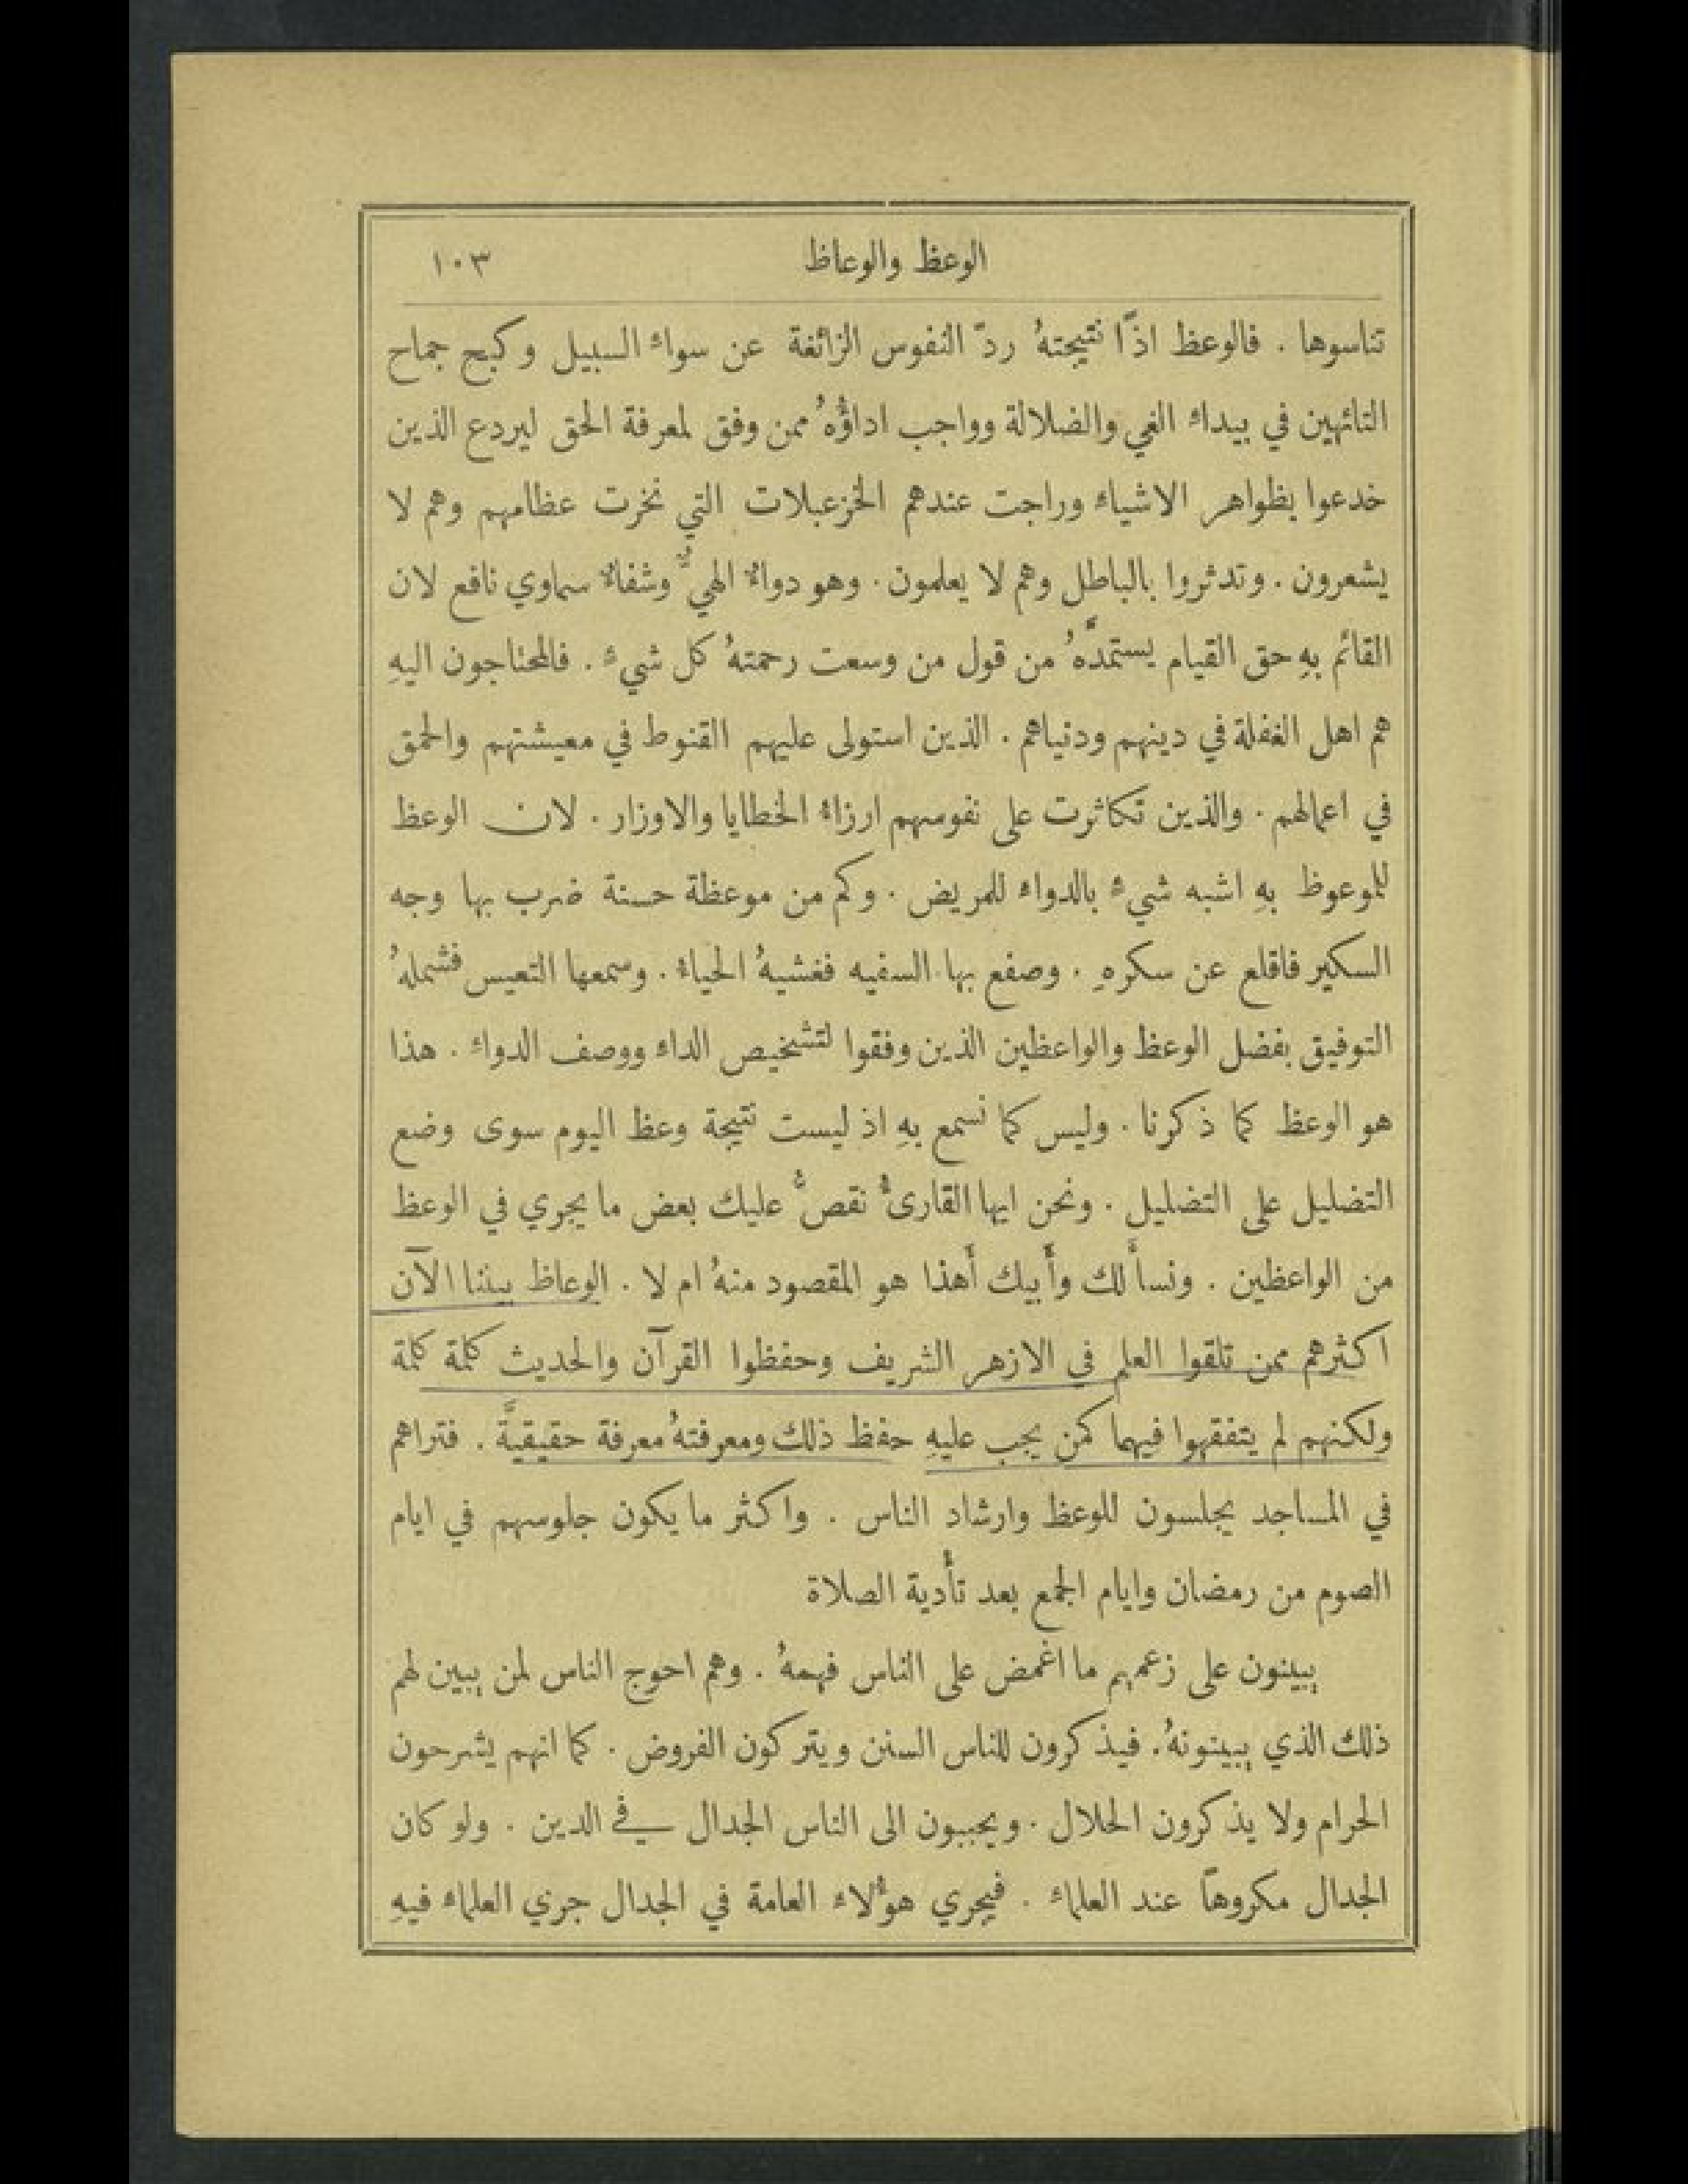 الوعظ والوعاظ ١٠٣
تناسوها . فالوعظ اذًا نتيجتهُ ردّ النفوس الزائغة عن سواء السبيل وكبح جماح
التائهين في بيداء الغي والضلالة وواجب اداؤُهُ ممن وفق لمعرفة الحق ليردع الذين
خدعوا بظواهر الاشياء وراجت عندهم الخزعبلات التي نخرت عظامهم وهم لا
يشعرون . وتدثروا بالباطل وهم لا يعلمون . وهو دواءٌ الهيٌّ وشفاءٌ سماوي نافع لان
القائم بهِ حق القيام يستمدُّهُ من قول من وسعت رحمتهُ كل شيء . فالمحتاجون اليهِ
هم اهل الغفلة في دينهم ودنياهم . الذين استولى عليهم القنوط في معيشتهم والحمق
في اعمالهم . والذين تكاثرت على نفوسهم ارزاء الخطايا والاوزار . لان الوعظ
للموعوظ بهِ اشبه شيء بالدواء للمريض . وكم من موعظة حسنة ضرب بها وجه
السكير فاقلع عن سكرهِ . وصفع بها السفيه فغشيهُ الحياء . وسمعها التعيس فشملهُ
التوفيق بفضل الوعظ والواعظين الذين وفقوا لتشخيص الداء ووصف الدواء . هذا
هو الوعظ كما ذكرنا . وليس كما نسمع بهِ اذ ليست نتيجة وعظ اليوم سوى وضع
التضليل على التضليل . ونحن ايها القارئُ نقصُّ عليك بعض ما يجري في الوعظ
من الواعظين . ونسأَلك وأَبيك أَهذا هو المقصود منهُ ام لا . الوعاظ بيننا الآن
اكثرهم ممن تلقوا العلم في الازهر الشريف وحفظوا القرآن والحديث كلمة كلمة
ولكنهم لم يتفقهوا فيهما كمن يجب عليهِ حفظ ذلك ومعرفتهُ معرفة حقيقيةً . فتراهم
في المساجد يجلسون للوعظ وارشاد الناس . واكثر ما يكون جلوسهم في ايام
الصوم من رمضان وايام الجمع بعد تأدية الصلاة
يبينون على زعمهم ما اغمض على الناس فهمهُ . وهم احوج الناس لمن يبين لهم
ذلك الذي يبينونهُ . فيذكرون للناس السنن ويتركون الفروض . كما انهم يشرحون
الحرام ولا يذكرون الحلال . ويحببون الى الناس الجدال في الدين . ولو كان
الجدال مكروهًا عند العلماء . فيجري هؤُلاء العامة في الجدال جري العلماء فيهِ